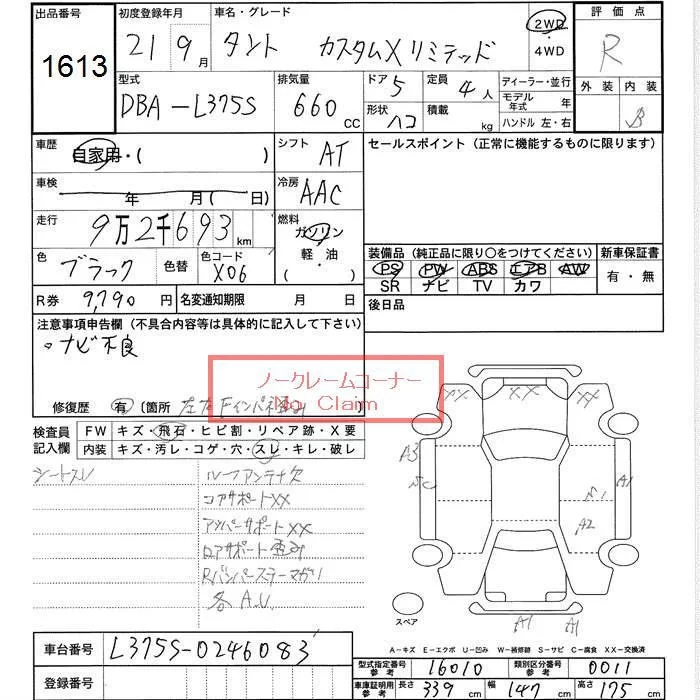 出品番号
1613
初度登録年月
21 9月
車名・グレード
タント カスタムXリミテッド
2WD・4WD
評価点
R
型式
DBA-L375S
排気量
660 CC
ドア 5
定員 4人
形状 ハコ
積載 kg
ディーラー・並行
モデル年式 年
ハンドル 左・右
外装 内装
B
車歴
自家用・( )
シフト AT
車検
年 月( 日)
冷房 AAC
走行
9万2千693 km
燃料
ガソリン
軽・油
( )
色 ブラック
色替
色コード X06
R券 9,790 円
名変通知期限 月 日
セールスポイント(正常に機能するものに限ります)
装備品(純正品に限り○をつけてください)
PS PW ABS エアB AW
SR ナビ TV カワ
新車保証書
有・無
後日品
注意事項申告欄(不具合内容等は具体的に記入して下さい)
○ナビ不良
ノークレームコーナー
No Claim
修復歴 有 〔箇所 左右Fインパネ
検査員記入欄
FW キズ・飛石・ヒビ割・リペア跡・X要
内装 キズ・汚レ・コゲ・穴・スレ・キレ・破レ
シートスレ
ルーフアンテナ欠
コアサポートXX
アッパーサポートXX
ロアサポート歪み
Rバンパーステーマガリ
各A.U
XX XX XX
A3
A1
A2
スペア
A1 A1
A-キズ E-エクボ U-凹み W-補修跡 S-サビ C-腐食 XX-交換済
車台番号 L375S-0246083
登録番号
型式指定番号 参考 16010
類別区分番号 参考 0011
車庫証明用 参考 長さ 339 cm 幅 147 cm 高さ 175 cm